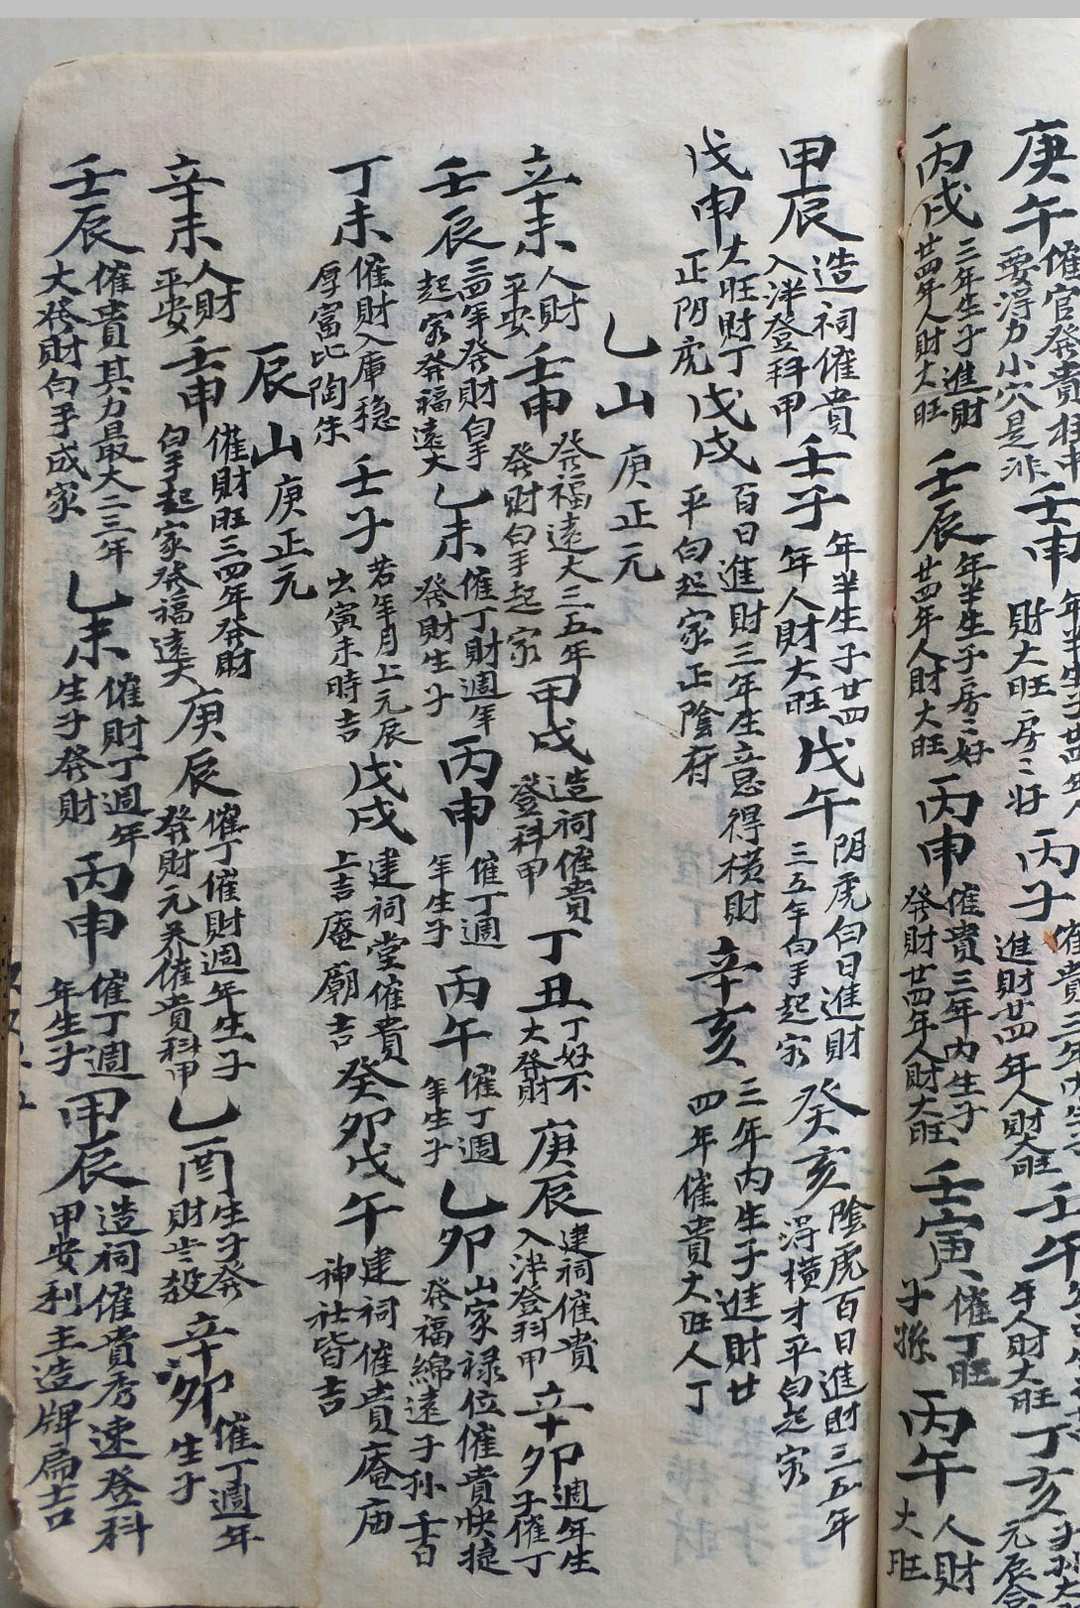 庚午 催官發貴 要得力小穴是 壬申 年半生子廿四年人 財大旺房〻好 丙子 催貴三年內生子 進財廿四年人財大旺 壬午 年人財大旺 丁亥
丙戌 三年生子進財 廿四年人財大旺 壬辰 年半生子房〻好 廿四年人財大旺 丙申 催貴三年內生子 發財廿四年人財大旺 壬寅 催丁旺 子孫 丙午 人財 大旺
甲辰 造祠催貴 入泮登科甲 壬子 年半生子廿四 年人財大旺 戊午 阴虎百日進財 三五年白手起家 癸亥 陰虎百日進財三五年 得橫才平白起家
戊申 大旺財丁 正阴虎 戊戌 百日進財三年生意得橫財 平白起家正陰府 辛亥 三年內生子進財廿 四年催貴大旺人丁
乙山 庚正元
辛未 人財 平安 壬申 發福遠大三五年 發財白手起家 甲戌 造祠催貴 登科甲 丁丑 丁好不 大發財 庚辰 建祠催貴 入泮登科甲 辛卯 週年生 子催丁
壬辰 三四年發財白手 起家發福遠大 乙未 催丁財週年 發財生子 丙申 催丁週 年生子 丙午 催丁週 年生子 乙卯 山家禄位催貴快捷 發福綿遠子孙
丁未 催財入庫稳 厚富比陶朱 壬子 若年月上元辰 出寅未時吉 戊戌 建祠堂催貴 上吉庵廟吉 癸卯 戊午 建祠催貴庵庙 神社皆吉
辰山 庚正元
辛未 人財 平安 壬申 催財旺三四年發財 白手起家發福遠大 庚辰 催丁催財週年生子 發財元癸催貴科甲 乙酉 生子發 財 殺 辛卯 催丁週年 生子
壬辰 催貴其力最大二三年 大發財白手成家 乙未 催財丁週年 生子發財 丙申 催丁週 年生子 甲辰 造祠催貴秀速登科 甲安利主造牌扁吉